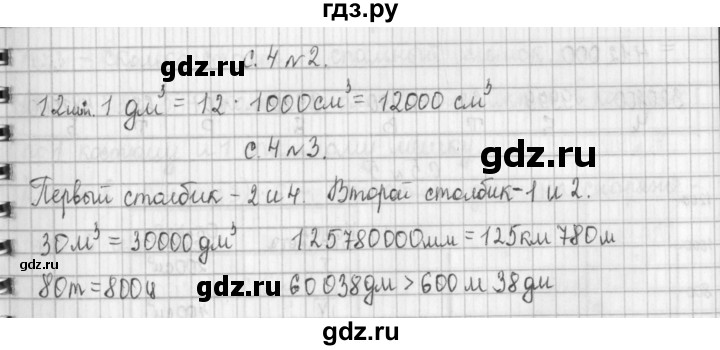 гдз.ру
с. 4 № 2.
gdz.ru gdz.ru
12 шт. 1 дм³ = 12 · 1000 см³ = 12000 см³
с. 4 № 3.
gdz.ru gdz.ru
Первый столбик - 2 и 4. Второй столбик - 1 и 2.
30 м³ = 30000 дм³ 125780000 мм = 125 км 780 м
80 т = 800 ц 60038 дм > 600 м 38 дм
gdz.ru gdz.ru
gdz.ru